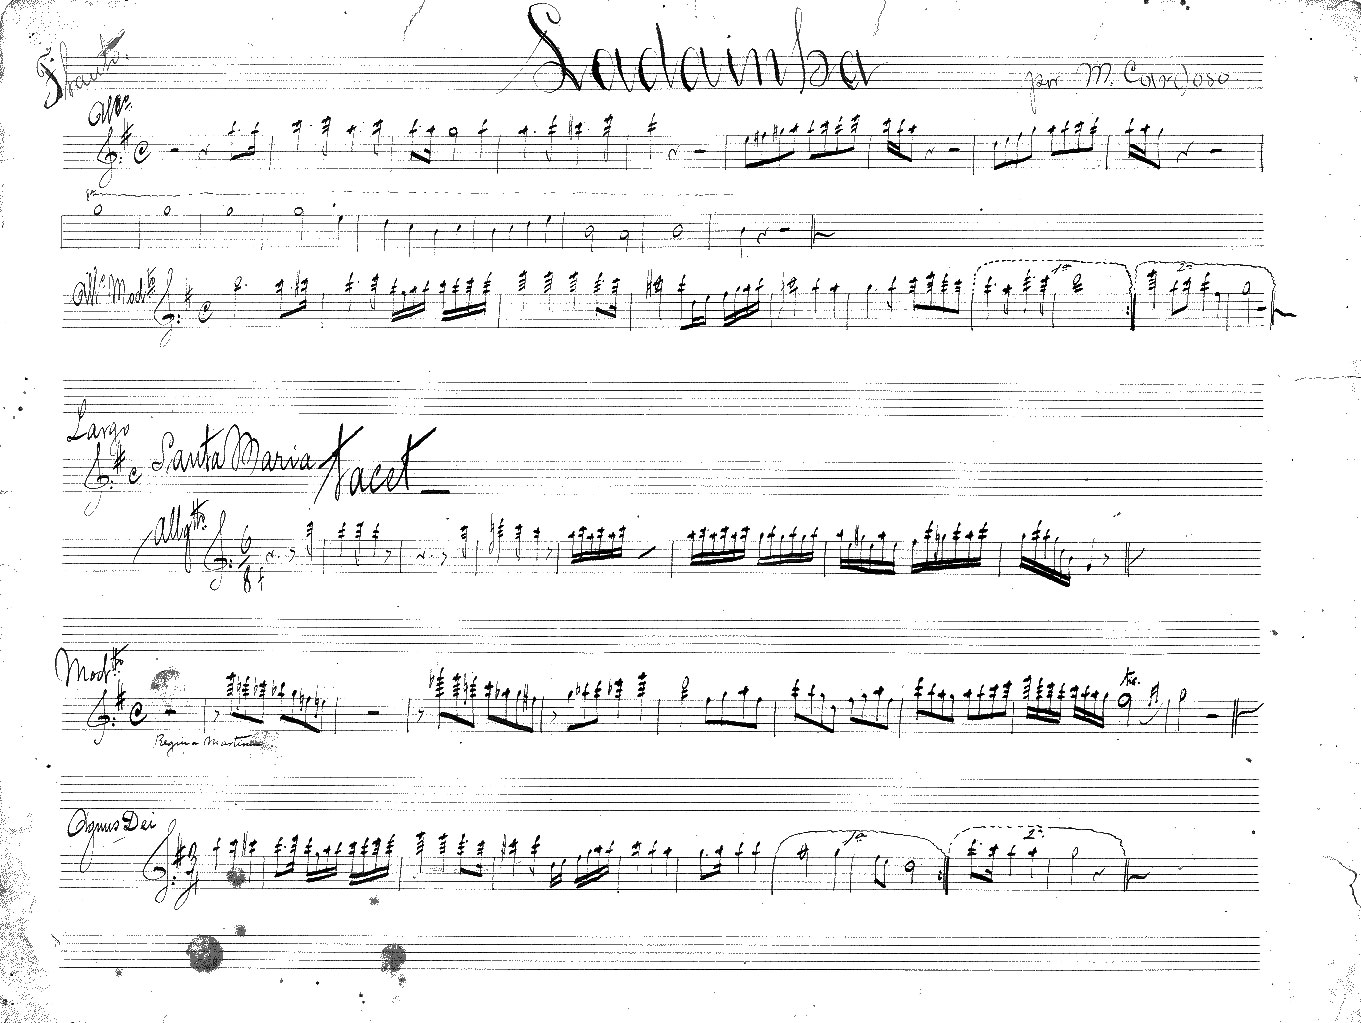 Flauto.
Ladainha
por M. Cardoso
Allo.
8a
All.o Modto
1a
2a
Largo
Santa Maria tacet
Allgtto.
6/8
Modto
Regina Martirum
Agnus Dei
3/4
1a
2a